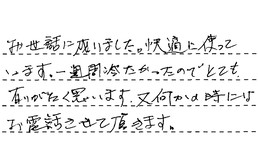 お世話に成りました。快適に使って
います。一週間冷たかったのでとても
有りがたく思います。又何かの時には
お電話させて頂きます。